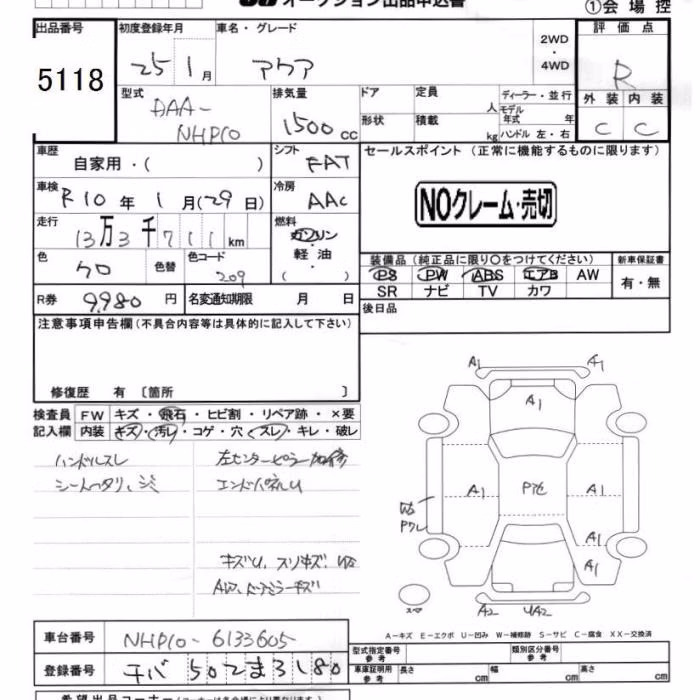 オークション出品申込書
①会場控
出品番号 初度登録年月 車名・グレード 2WD ・ 4WD 評価点
5118 25 1月 アクア R
型式 排気量 ドア 定員 人 ディーラー・並行 外装 内装
DAA-NHP10 1500cc 形状 積載 kg モデル年式 年 ハンドル 左・右 C C
車歴 自家用・( ) シフト FAT セールスポイント(正常に機能するものに限ります)
車検 R10年 1月(29日) 冷房 AAC NOクレーム・売切
走行 13万3千711km 燃料 ガソリン
軽油
( )
色 クロ 色替 色コード 209
装備品(純正品に限り○をつけてください) 新車保証書
PS PW ABS エアB AW 有・無
SR ナビ TV カワ
R券 9980円 名変通知期限 月 日 後日品
注意事項申告欄(不具合内容等は具体的に記入して下さい)
修復歴 有〔箇所 〕
検査員 FW キズ・飛石・ヒビ割・リペア跡・×要
記入欄 内装 キズ・汚レ・コゲ・穴・スレ・キレ・破レ
ハンドルスレ 左センターピラー加修
シートヘタリ、シミ エンドパネルU
キズU、スリキズ、
A1 A1
A1
A1 A1
A1
A1
A2 UA2
スペア
A-キズ E-エクボ U-凹み W-補修跡 S-サビ C-腐食 XX-交換済
車台番号 NHP10-6133605
登録番号 チバ 502 ま 3180
型式指定番号 参考 類別区分番号 参考
車庫証明用 参考 長さ cm 幅 cm 高さ cm
希望出品コーナー